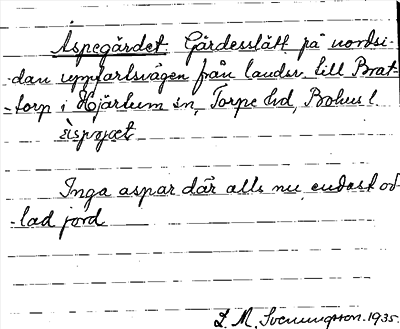 Aspegärdet. Gärdesslätt på nordsi-
dan uppfartsvägen från landsv. till Brat-
torp i Hjärtum sn, Torpe hd, Bohus l.

Inga aspar där alls nu, endast od-
lad jord.
L. M. Svenungsson. 1935.